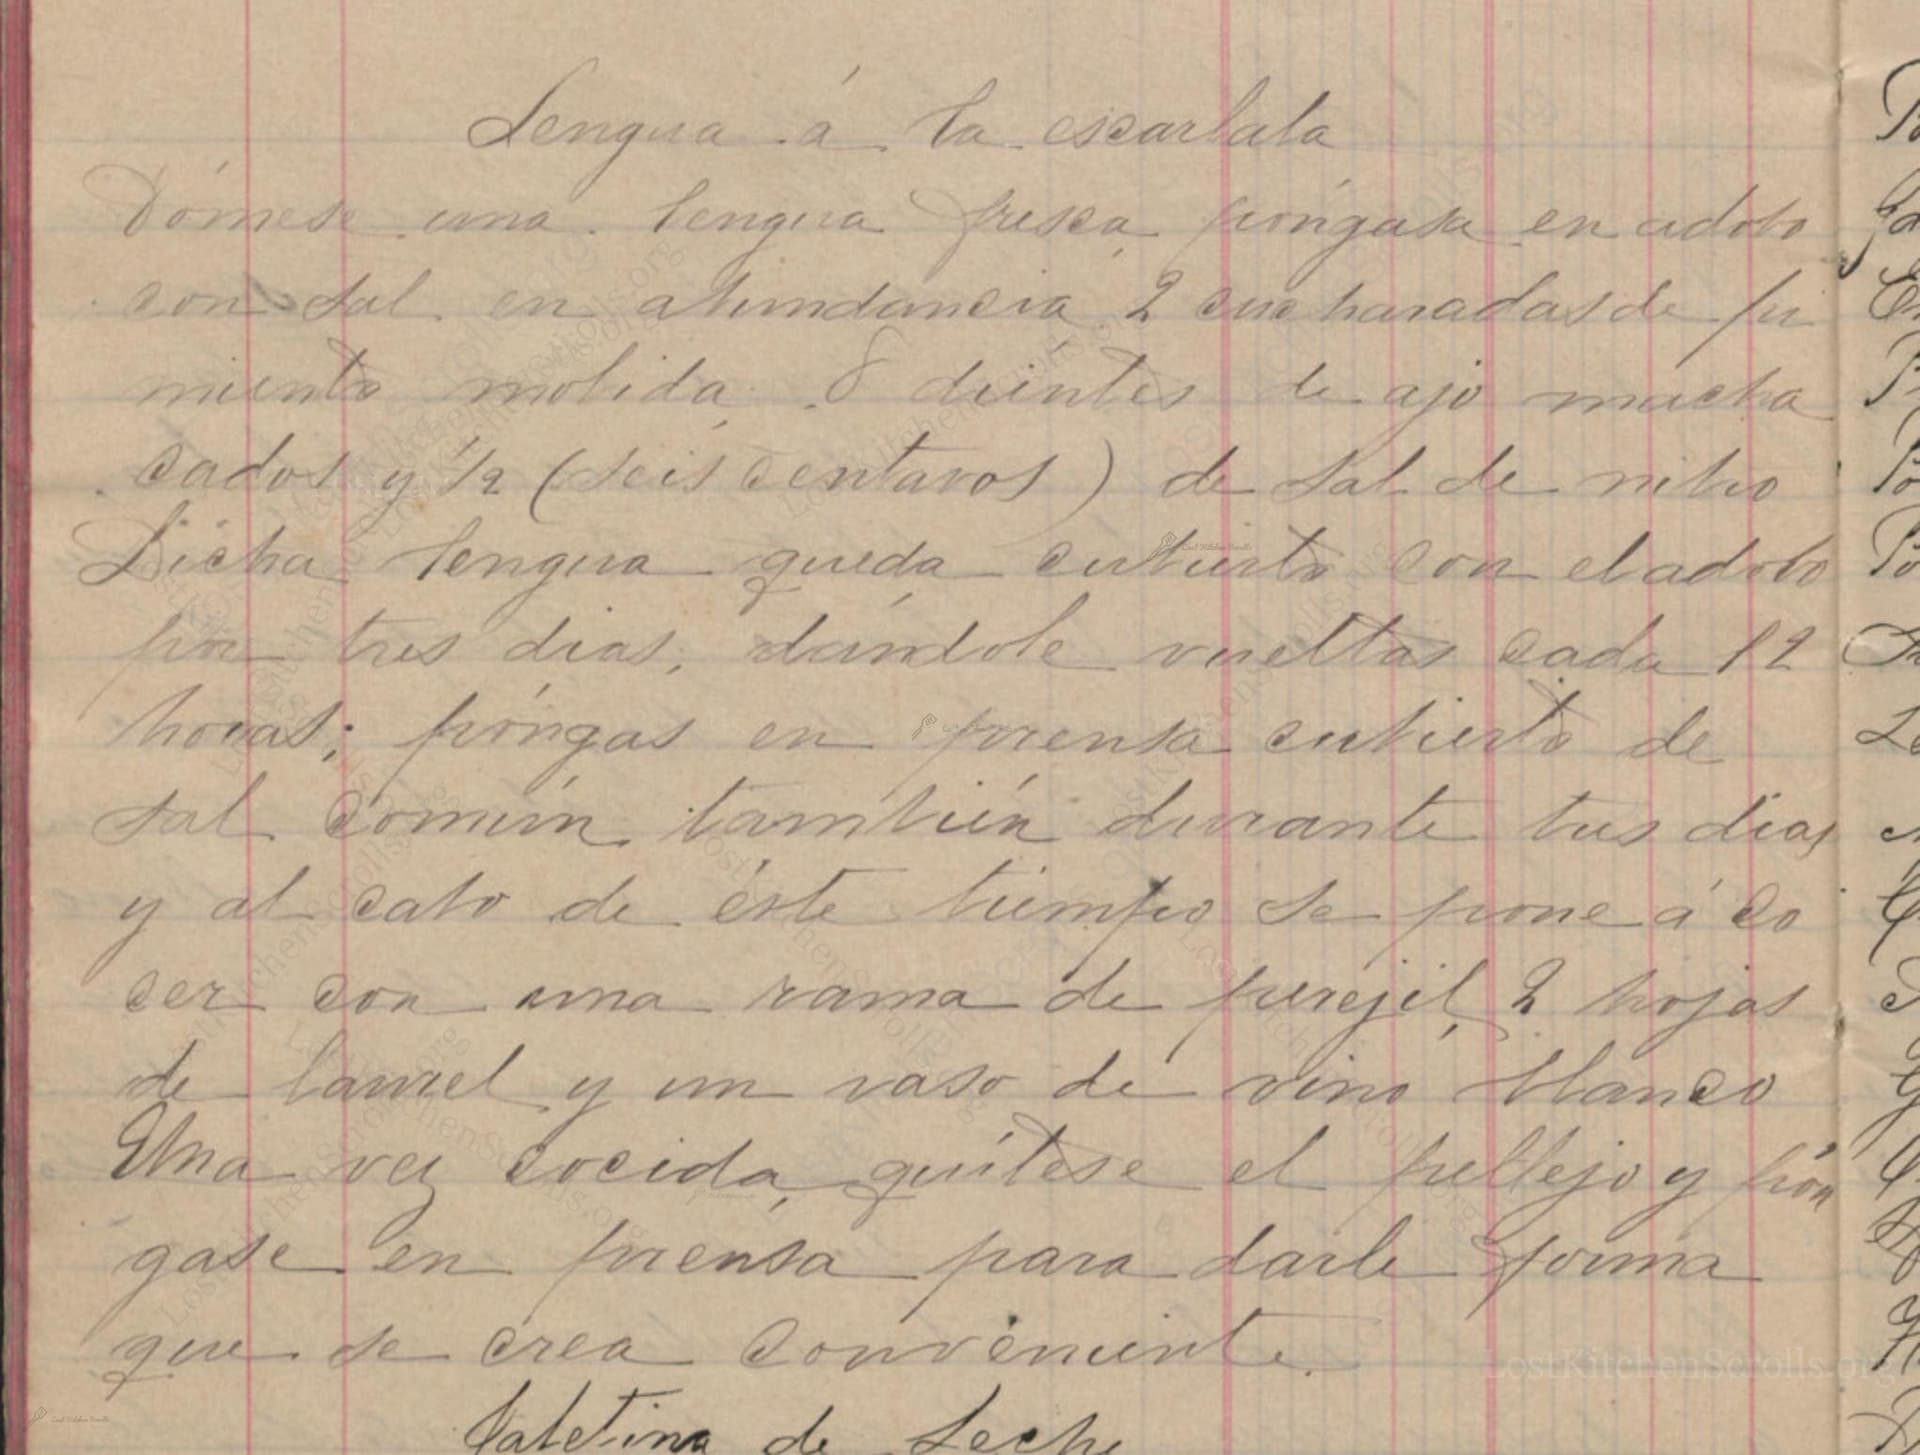 Lengua á la escarlata
Tómese una lengua fresca, póngasa en adobo
con sal en abundancia, 2 cucharadas de pi
miento molida, 8 dientes de ajo macha
cados y 1/2 (seis centavos) de sal de nitro
Dicha lengua queda cubierto con el adobo
por tres dias, dándole vueltas cada 12
horas; póngas en prensa cubierto de
sal común también durante tres dias
y al cabo de éste tiempo se pone á co
cer con una rama de perejil, 2 hojas
de laurel y un vaso de vino blanco
Una vez cocida, quítese el pellejo y pón
gase en prensa para darle forma
que se crea conveniente.
Galetina de Leche
LostKitchenScrolls.org